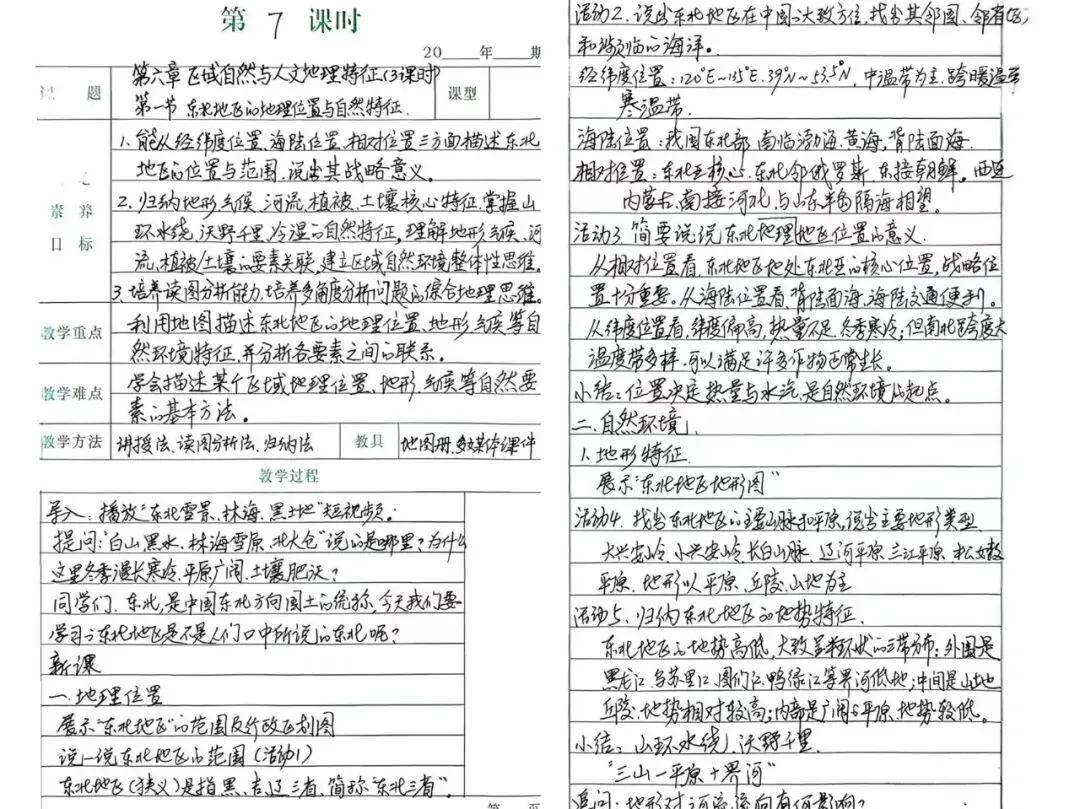 第 7 课时
20 年 期
题
第六章 区域自然与人文地理特征(3课时)
第一节 东北地区的地理位置与自然特征.
课型
素养
目标
1.能从经纬度位置、海陆位置、相对位置三方面描述东北
地区的位置与范围,说出其战略意义。
2.归纳地形、气候、河流、植被、土壤核心特征,掌握山
环水绕、沃野千里、冷湿的自然特征,理解地形、气候、河
流、植被/土壤的要素关联,建立区域自然环境整体性思维。
3.培养读图分析能力,培养多角度分析问题的综合地理思维。
教学重点
利用地图描述东北地区的地理位置、地形、气候等自
然环境特征,并分析各要素之间的联系。
教学难点
学会描述某个区域地理位置、地形、气候等自然要
素的基本方法。
教学方法
讲授法、读图分析法、归纳法
教具
地图册、多媒体课件
教学过程
导入:播放“东北雪景、林海、黑土地”短视频。
提问:“白山黑水、林海雪原、北大仓”说的是哪里?为什么
这里冬季漫长寒冷、平原广阔、土壤肥沃?
同学们,东北,是中国东北方向国土的统称,今天我们要
学习的东北地区是不是人们口中所说的东北呢?
新课
一.地理位置
展示“东北地区”的范围及行政区划图
说一说东北地区的范围(活动1)
东北地区(狭义)是指黑、吉、辽三省,简称“东北三省”。
活动2.说出东北地区在中国的大致方位,找出其邻国、邻省(区)
和濒临的海洋。
经纬度位置:120°E~135°E.39°N~53.5°N,中温带为主,跨暖温带
寒温带.
海陆位置:我国东北部,南临渤海、黄海,背陆面海.
相对位置:东北亚核心.东北邻俄罗斯,东接朝鲜.西连
内蒙古,南接河北,与山东半岛隔海相望。
活动3.简要说说东北地理地区位置的意义.
从相对位置看,东北地区地处东北亚的核心位置,战略位
置十分重要。从海陆位置看,背陆面海,海陆交通便利。
从纬度位置看,纬度偏高,热量不足,冬季寒冷,但南北跨度大
温度带多样,可以满足许多作物正常生长。
小结:位置决定热量与水汽,是自然环境的起点。
二.自然环境
1.地形特征.
展示“东北地区地形图”
活动4.找出东北地区的主要山脉和平原,说出主要地形类型
大兴安岭、小兴安岭、长白山脉、辽河平原、三江平原、松嫩
平原.地形以平原、丘陵、山地为主
活动5.归纳东北地区的地势特征.
东北地区的地势高低,大致呈半环状的三带分布:外围是
黑龙江、乌苏里江、图们江、鸭绿江等界河低地;中间是山地
丘陵,地势相对较高;内部是广阔的平原,地势较低。
小结:山环水绕,沃野千里.
“三山一平原+界河”
追问:地形对河流流向有何影响?